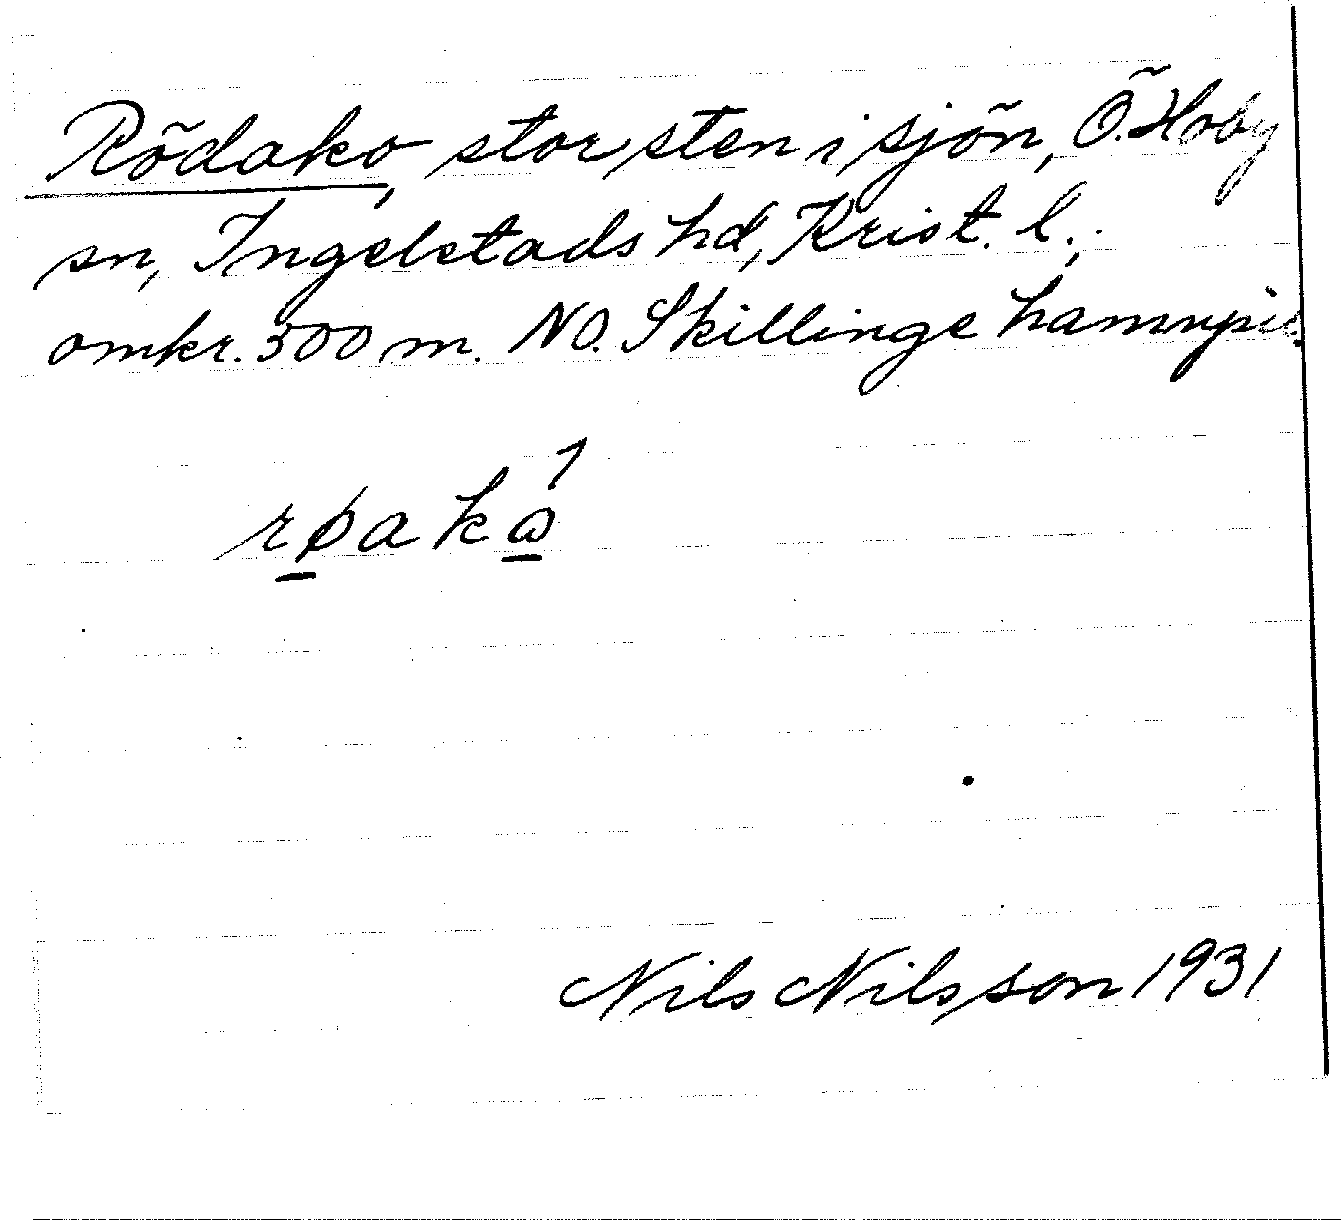 Rödako, stor sten i sjön, Ö. Hoby
sn, Ingelstads hd, Krist. l.,
omkr. 500 m. NO. Skillinge hamnpir.
røakω̂
Nils Nilsson 1931